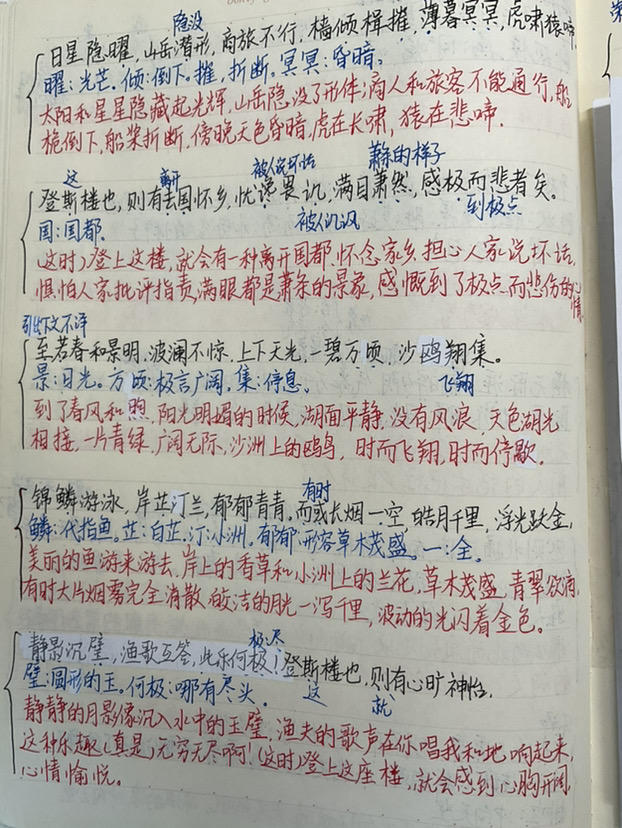 隐没
日星隐曜，山岳潜形，商旅不行，樯倾楫摧，薄暮冥冥，虎啸猿啼
曜：光芒。倾：倒下。摧，折断。冥冥：昏暗。
太阳和星星隐藏起光辉，山岳隐没了形体；商人和旅客不能通行，船
桅倒下，船桨折断，傍晚天色昏暗，虎在长啸，猿在悲啼。
这 离开 被人说坏话 萧条的样子
登斯楼也，则有去国怀乡，忧谗畏讥，满目萧然，感极而悲者矣。
国：国都. 被人讥讽 到极点
(这时)登上这楼，就会有一种离开国都，怀念家乡，担心人家说坏话，
惧怕人家批评指责，满眼都是萧条的景象，感慨到了极点而悲伤的心情
引出下文不译
至若春和景明，波澜不惊，上下天光，一碧万顷，沙鸥翔集。
景：日光。万顷：极言广阔，集：停息。 飞翔
到了春风和煦，阳光明媚的时候，湖面平静，没有风浪，天色湖光
相接，一片青绿，广阔无际，沙洲上的鸥鸟，时而飞翔，时而停歇。
有时
锦鳞游泳，岸芷汀兰，郁郁青青。而或长烟一空，皓月千里，浮光跃金，
鳞：代指鱼。芷：白芷。汀：小洲，郁郁：形容草木茂盛。一：全。
美丽的鱼游来游去，岸上的香草和小洲上的兰花，草木茂盛，青翠欲滴，
有时大片烟雾完全消散，皎洁的月光一泻千里，波动的光闪着金色。
极尽
静影沉璧，渔歌互答，此乐何极！登斯楼也，则有心旷神怡，
璧：圆形的玉。何极：哪有尽头。 这 就
静静的月影像沉入水中的玉璧，渔夫的歌声在你唱我和地响起来，
这种乐趣(真是)无穷无尽啊！(这时)登上这座楼，就会感到心胸开阔，
心情愉悦。